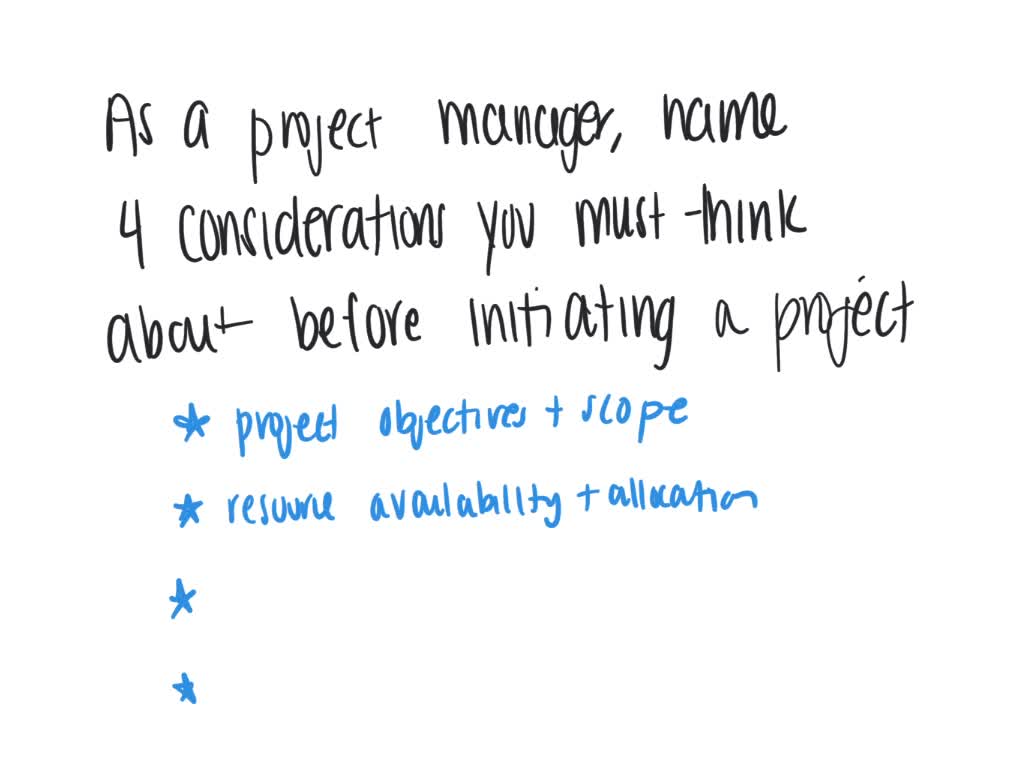 As a project manager, name
4 considerations you must think
about before initiating a project
* project objectives + scope
* resource availability + allocation
*
*